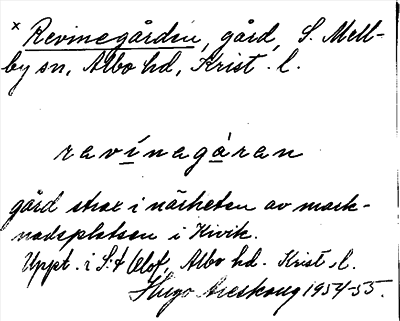 x Revinegården, gård, S. Mell-
by sn, Albo hd, Krist. l.
ravínegàran
gård strax i närheten av mark-
nadsplatsen i Kivik.
Uppt. i S:t Olof, Albo hd. Krist. l.
Hugo Areskoug 1954-55.